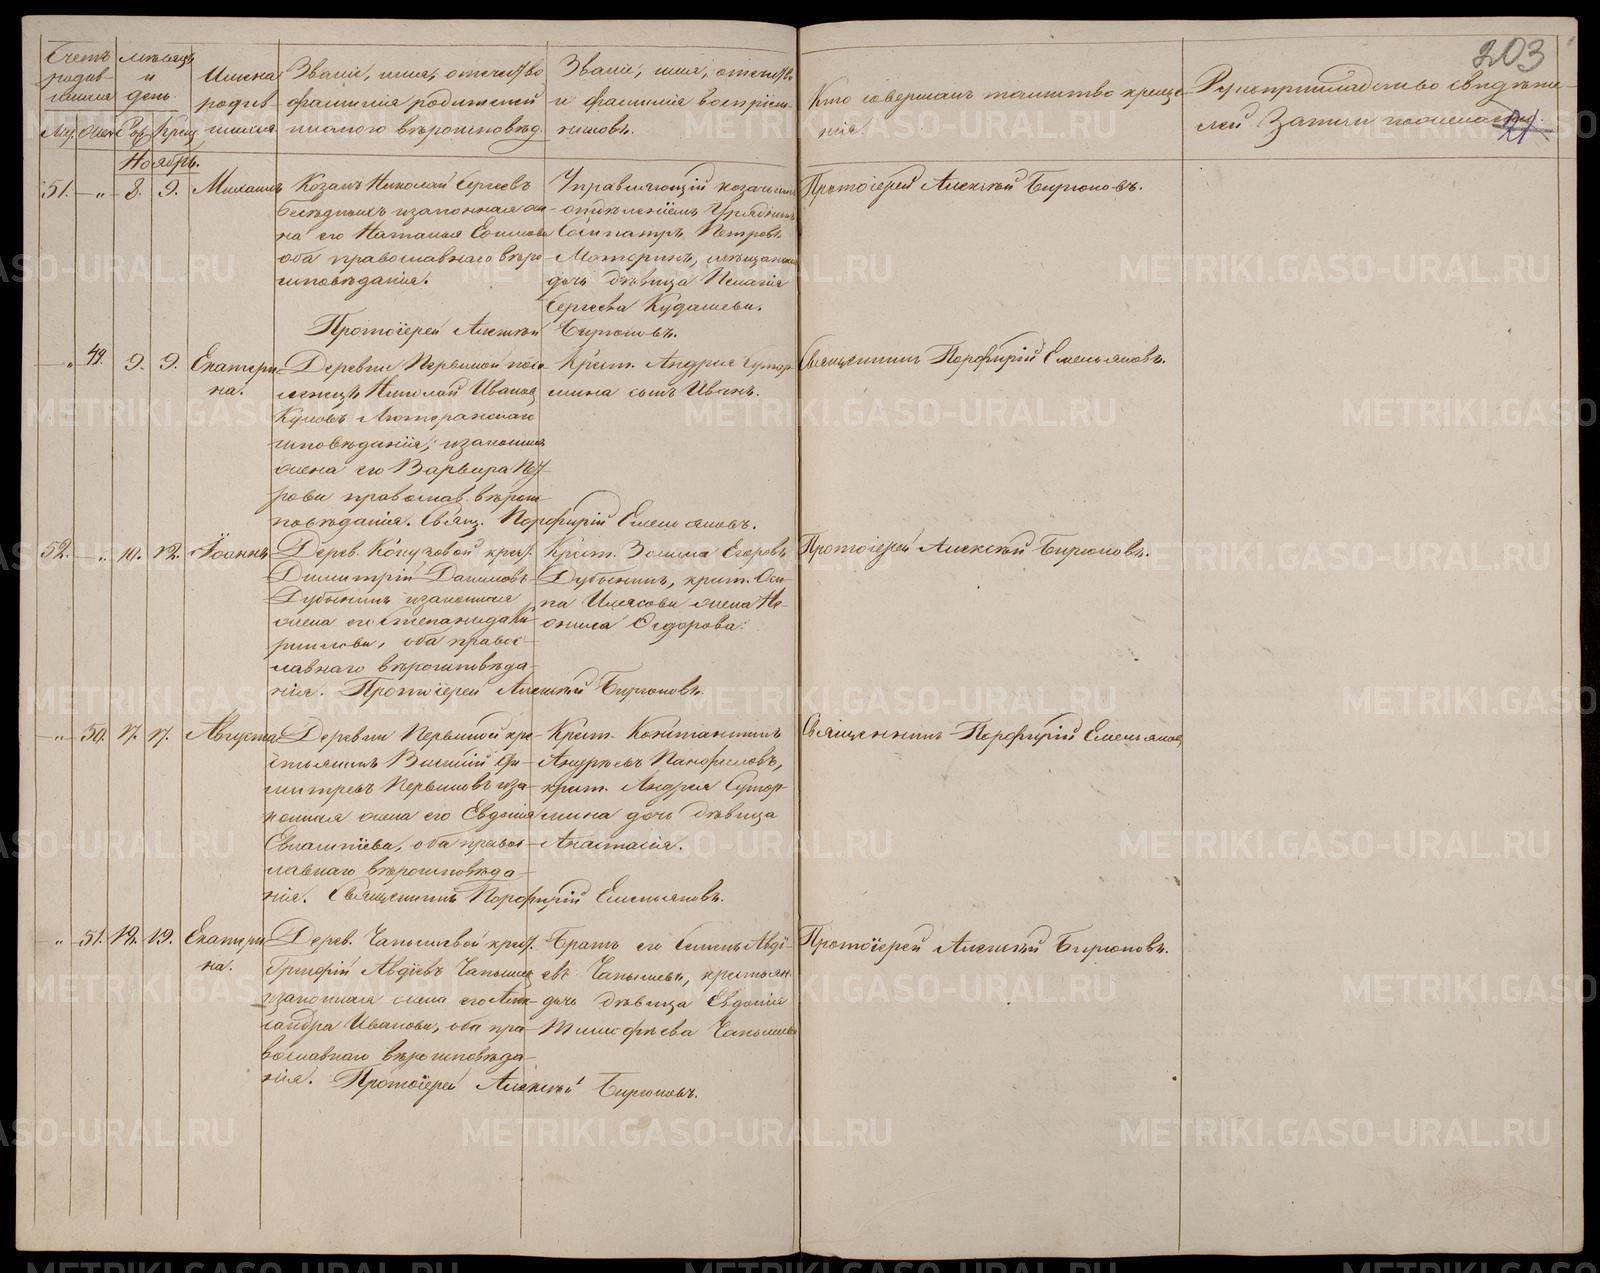 203
21
Счетъ родив-шихся
мѣсяцъ и день.
Имена родив-шихся
Званіе, имя, отчество
фамилія родителей
и какого вѣроисповѣд.
Званіе, имя, отчество
и фамилія воспріем-
никовъ.
Кто совершалъ таинство креще-
нія.
Рукоприкладство свидѣте-
лей записи
Ноябрь.
51. — „ 8. 9. Михаилъ
Козакъ Николай Сергѣевъ
и законная же-
на его Наталья
оба православнаго вѣро-
исповѣданія.
Управляющій козачьимъ
отдѣленіемъ Урядникъ
Петровъ
мѣщанская
дочь дѣвица Пелагія
Сергѣева Кудашева.
Протоіерей Алексѣй Бирюковъ.
Протоіерей Алексѣй Бирюковъ.
— „ 49. 9. 9. Екатери-
на.
Деревни Первиной посе-
ленецъ Николай Ивановъ
Лютеранскаго
исповѣданія, и законная
жена его Варвара Пет-
рова православ. вѣроис-
повѣданія. Свящ. Порфирій Емельяновъ.
Крест. Андрея Сутор-
мина сынъ Иванъ.
Священникъ Порфирій Емельяновъ.
52. — „ 10. 12. Іоаннъ
Дерев. крест.
Димитрій Даниловъ
Дубынинъ и законная
жена его Степанида Ки-
рилова, оба правос-
лавнаго вѣроисповѣда-
нія. Протоіерей Алексѣй Бирюковъ.
Крест. Зосима Егоровъ
Дубынинъ, крест. Оси-
па жена Не-
онила Ѳедорова.
Протоіерей Алексѣй Бирюковъ.
— „ 50. 17. 17. Августа
Деревни Первиной кре-
стьянинъ Василій Ди-
митріевъ Первиновъ и за-
конная жена его Евдокія
Евлампіева, оба право-
лавнаго вѣроисповѣда-
нія. Священникъ Порфирій Емельяновъ.
Крест. Константинъ
Андреевъ Панфиловъ,
крест. Андрея Сутор-
мина дочь дѣвица
Анастасія.
Священникъ Порфирій Емельяновъ
— „ 51. 19. 19. Екатери-
на.
Дерев. Чапышевой крест.
Григорій Авдіевъ Чапышев
и законная жена его Алек-
сандра Иванова, оба пра-
вославнаго вѣроисповѣда-
нія. Протоіерей Алексѣй Бирюковъ.
Братъ его Семенъ Авді-
евъ Чапышевъ, крестьян.
дочь дѣвица Евдокія
Тимофѣева Чапышева
Протоіерей Алексѣй Бирюковъ.
METRIKI.GASO-URAL.RU